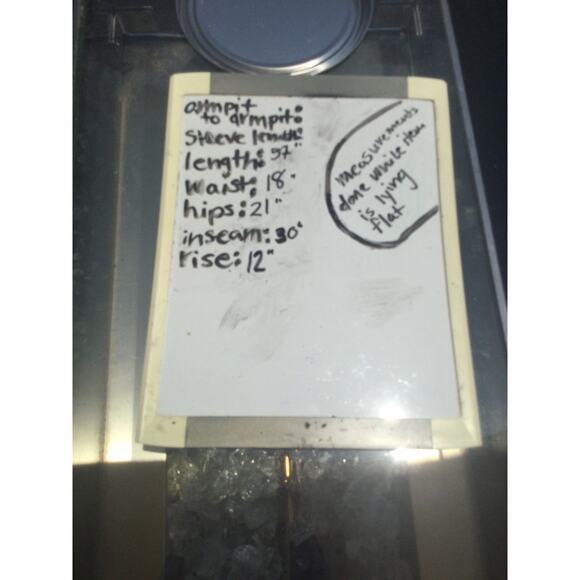 armpit
to armpit:
Sleeve length:
length: 37"
Waist: 18"
hips: 21"
inseam: 30"
rise: 12"
measurements
done while item
is lying
flat